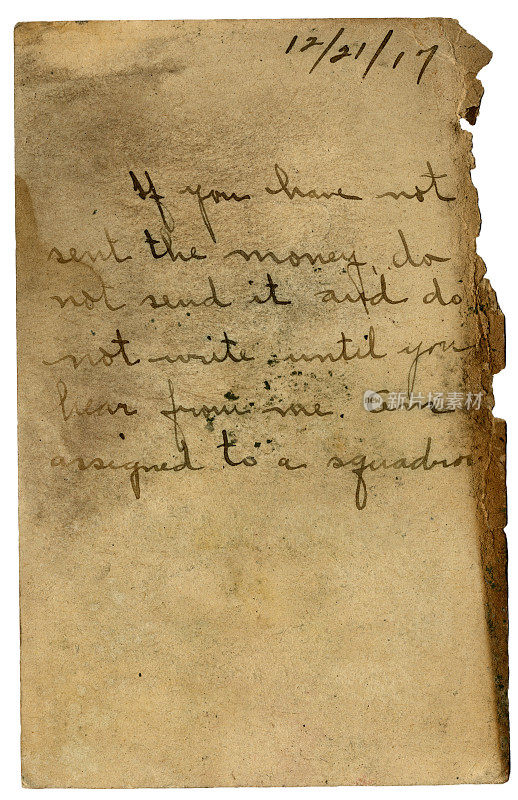 12/21/17
If you have not
sent the money, do
not send it and do
not write until you
hear from me. Am
assigned to a squadron
新片场素材